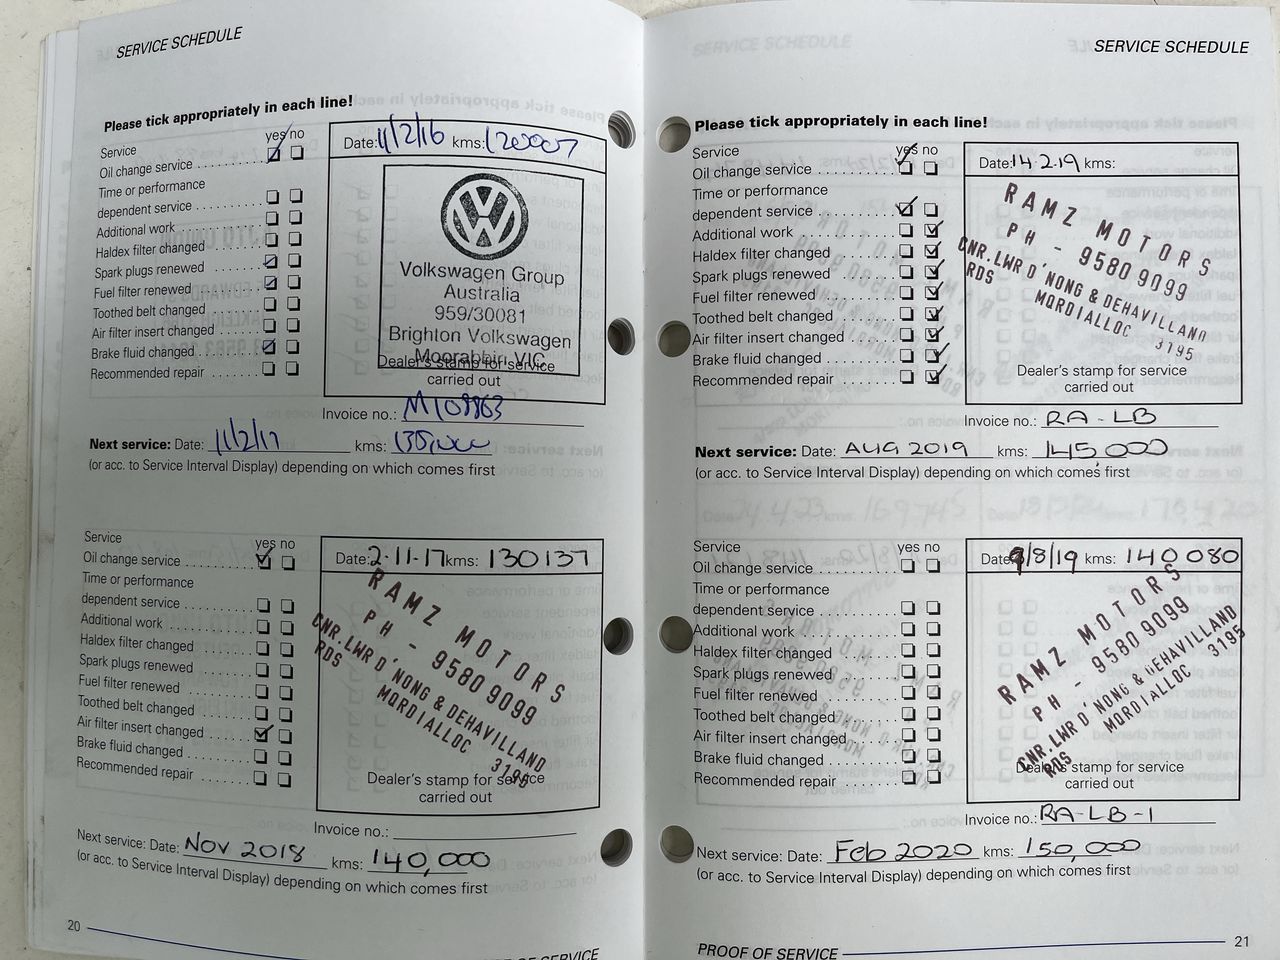 SERVICE SCHEDULE
Please tick appropriately in each line!
yes no
Service
Oil change service
Time or performance
dependent service
Additional work
Haldex filter changed
Spark plugs renewed
Fuel filter renewed
Toothed belt changed
Air filter insert changed
Brake fluid changed
Recommended repair
Date: 11/2/16 kms: 120007
Volkswagen Group
Australia
959/30081
Brighton Volkswagen
Moorabbin VIC
Dealer's stamp for service
carried out
Invoice no.: M108863
Next service: Date: 11/2/17 kms: 135,000
(or acc. to Service Interval Display) depending on which comes first
Service
yes no
Oil change service
Time or performance
dependent service
Additional work
Haldex filter changed
Spark plugs renewed
Fuel filter renewed
Toothed belt changed
Air filter insert changed
Brake fluid changed
Recommended repair
Date: 2-11-17 kms: 130137
RAMZ MOTORS
PH - 9580 9099
CNR. LWR D'NONG & DEHAVILLAND
RDS
MORDIALLOC 3195
Dealer's stamp for service
carried out
Invoice no.:
Next service: Date: Nov 2018 kms: 140,000
(or acc. to Service Interval Display) depending on which comes first
20
SERVICE SCHEDULE
Please tick appropriately in each line!
Service
yes no
Oil change service
Time or performance
dependent service
Additional work
Haldex filter changed
Spark plugs renewed
Fuel filter renewed
Toothed belt changed
Air filter insert changed
Brake fluid changed
Recommended repair
Date: 14.2.19 kms:
RAMZ MOTORS
PH - 9580 9099
CNR. LWR D'NONG & DEHAVILLAND
RDS
MORDIALLOC 3195
Dealer's stamp for service
carried out
Invoice no.: RA-LB
Next service: Date: AUG 2019 kms: 145,000
(or acc. to Service Interval Display) depending on which comes first
Service
yes no
Oil change service
Time or performance
dependent service
Additional work
Haldex filter changed
Spark plugs renewed
Fuel filter renewed
Toothed belt changed
Air filter insert changed
Brake fluid changed
Recommended repair
Date: 9/8/19 kms: 140080
RAMZ MOTORS
PH 9580 9099
CNR. LWR D'NONG & DEHAVILLAND
RDS
MORDIALLOC 3195
Dealer's stamp for service
carried out
Invoice no.: RA-LB-1
Next service: Date: Feb 2020 kms: 150,000
(or acc. to Service Interval Display) depending on which comes first
PROOF OF SERVICE
21
OF SERVICE